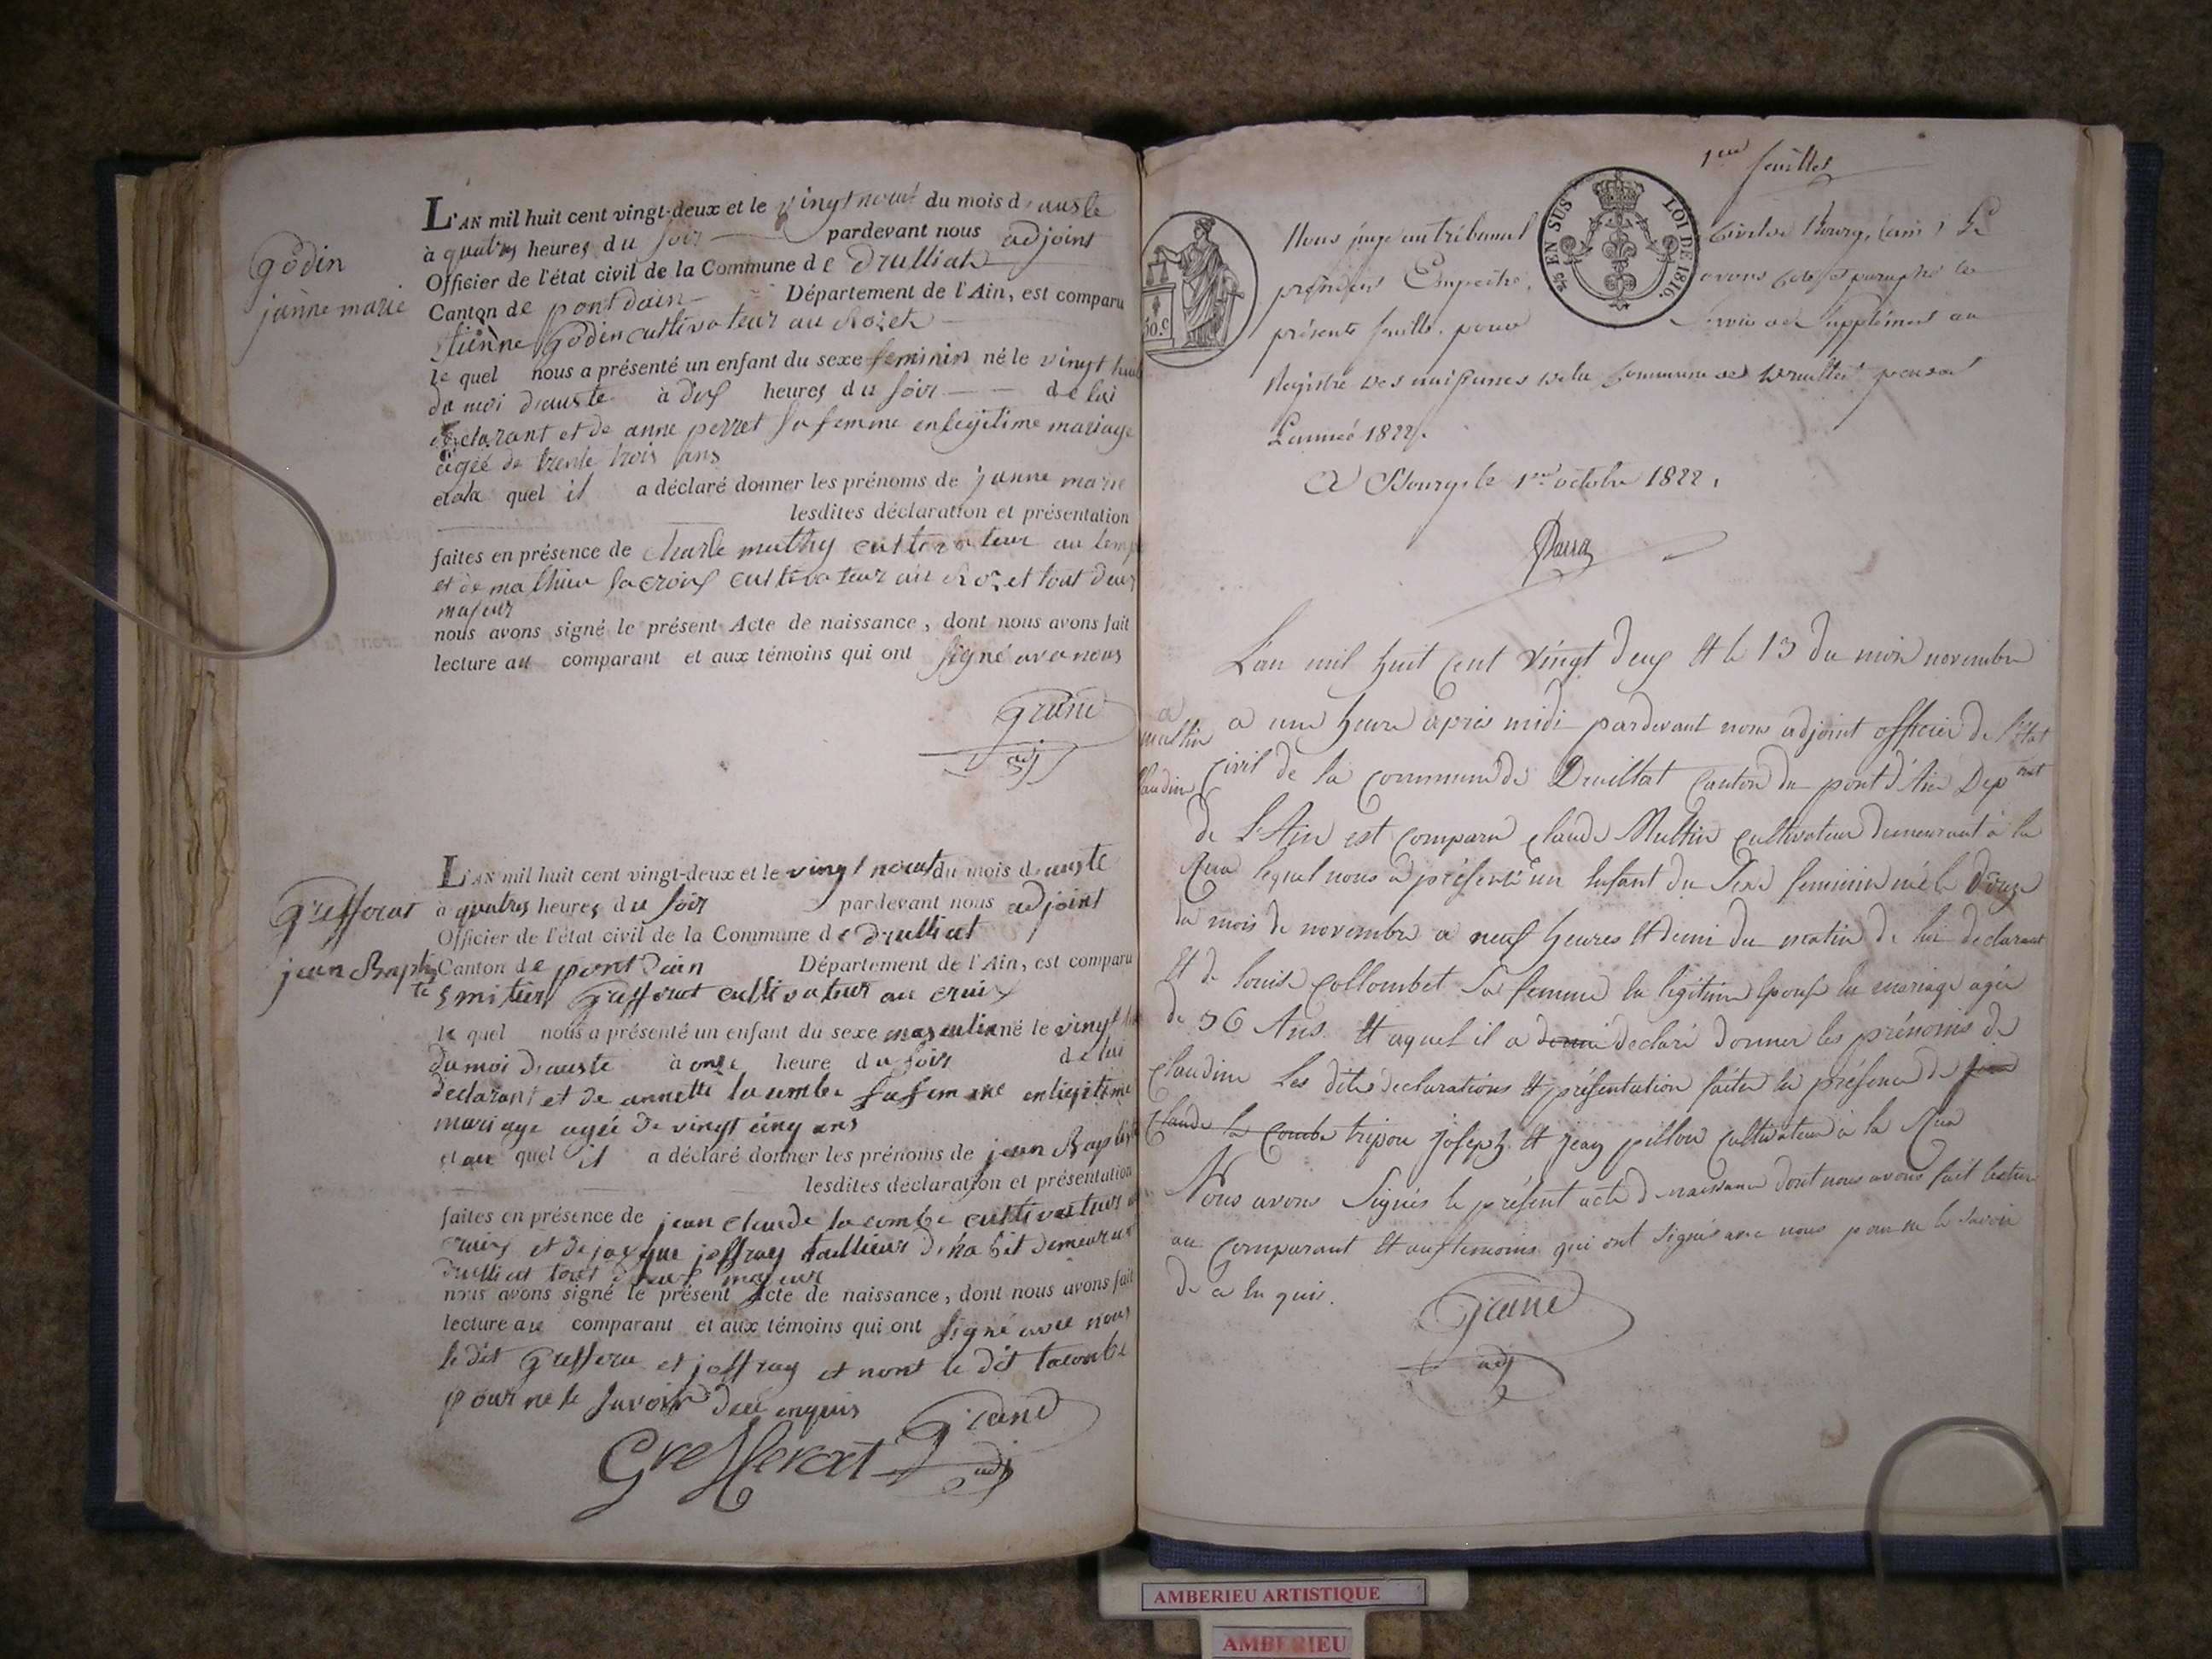 Godin
janne marie
L'AN mil huit cent vingt-deux et le vingt neuf du mois d'auste
à quatres heures du soir pardevant nous adjoint
Officier de l'état civil de la Commune de Drulliat
Canton de pont dain Département de l'Ain, est comparu
Etiènne Godin cultivateur au Rozet
le quel nous a présenté un enfant du sexe feminin né le vingt huit
du moi d'auste à dix heures du soir de lui
declarant et de anne perret sa femme en legitime mariage
agée de trente trois ans
et à la quel il a déclaré donner les prénoms de janne marie
lesdites déclaration et présentation
faites en présence de charle muthy cultivateur au
et de mathieu lacroix cultivateur au Rozet tout deux
majeur
nous avons signé le présent Acte de naissance, dont nous avons fait
lecture au comparant et aux témoins qui ont signé avec nous
adj
Grefforat
jean Baptiste
L'AN mil huit cent vingt-deux et le vingt neuf du mois d'auste
à quatres heures du soir pardevant nous adjoint
Officier de l'état civil de la Commune de Drulliat
Canton de pont dain Département de l'Ain, est comparu
Grefforat cultivateur au cruix
le quel nous a présenté un enfant du sexe masculin né le vingt
du moi d'auste à onze heure du soir de lui
declarant et de annette lacombe sa femme en legitime
mariage agée de vingt cinq ans
et au quel il a déclaré donner les prénoms de jean Baptiste
lesdites déclaration et présentation
faites en présence de jean claude lacombe cultivateur au
cruix et de jacque joffray taillieur d'habit demeurant
drulliat tout deux majeur
nous avons signé le présent Acte de naissance, dont nous avons fait
lecture au comparant et aux témoins qui ont signé avec nous
le dit Greffera et joffray et nont le dit lacombe
pour ne le savoir deu enquis
Grefferat
adj
1ere feuillet
Nous juge au tribunal civil de Bourg, (ain) le
président Empeché, avons coté et paraphé la
présente feuille pour servir de supplément au
Registre des naissances de la commune de Druillat pendant
L'année 1822.
A Bourg le 1er octobre 1822.
30.c
EN SUS
LOI DE 1816.
L'an mil huit cent vingt deux et le 13 du mois novembre
a une heure après midi pardevant nous adjoint officier de l'état
civil de la commune de Druillat canton du pont d'Ain Depmt
de L'Ain est comparu claude Multin cultivateur demeurant à la
Rua lequel nous a présenté un enfant du sexe feminin né le douze
du mois de novembre a neuf heures et demi du matin de lui declarant
Et de louise Collombet sa femme en légitime épouse en mariage agée
de 36 Ans. Et aquel il a declaré donner les prénoms de
Claudine Les dites declarations et présentation faites en présence de
Claude la Combe tripou joseph et jean pillon cultivateur à la Rua
Nous avons signés le présent acte d naissance dont nous avons fait lecture
au comparant et aux temoins qui ont signés avec nous pour ne le savoir
de ce en quis.
multin
adj
AMBERIEU ARTISTIQUE
AMBERIEU